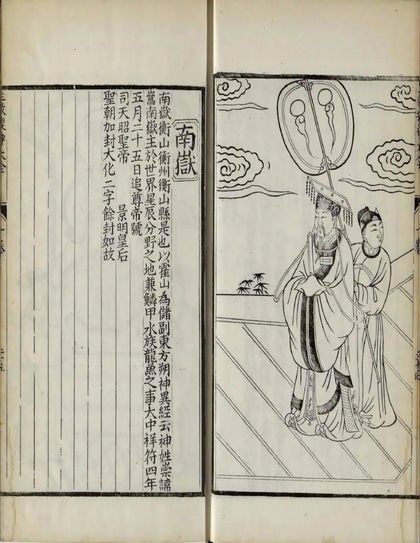 南嶽
南嶽衡山衡州衡山縣是也以霍山為儲副東方朔神異經云神姓崇諱
𡾋南嶽主於世界星辰分野之地兼鱗甲水族龍魚之事大中祥符四年
五月二十五日追尊帝號
司天昭聖帝 景明皇后
聖朝加封大化二字餘封如故